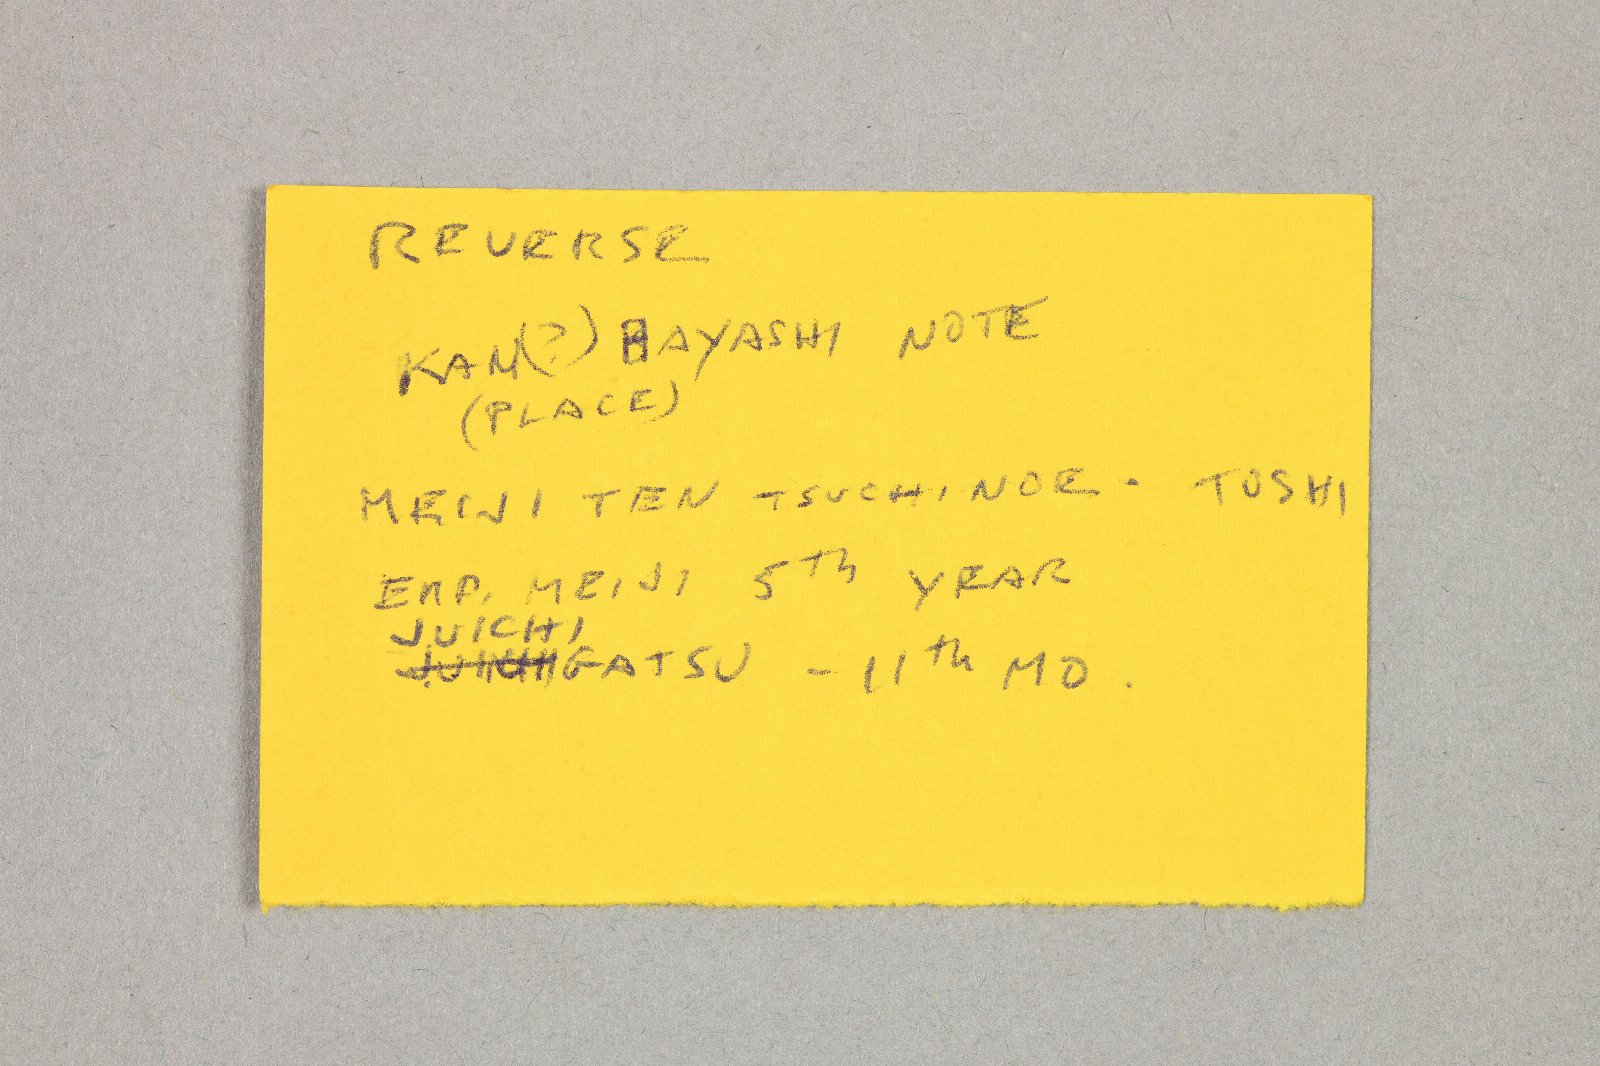 REVERSE
KAN(?) BAYASHI NOTE
(PLACE)
MEIJI TEN TSUCHINOE - TOSHI
EMP. MEIJI 5th YEAR
JUICHI
GATSU - 11th MO.